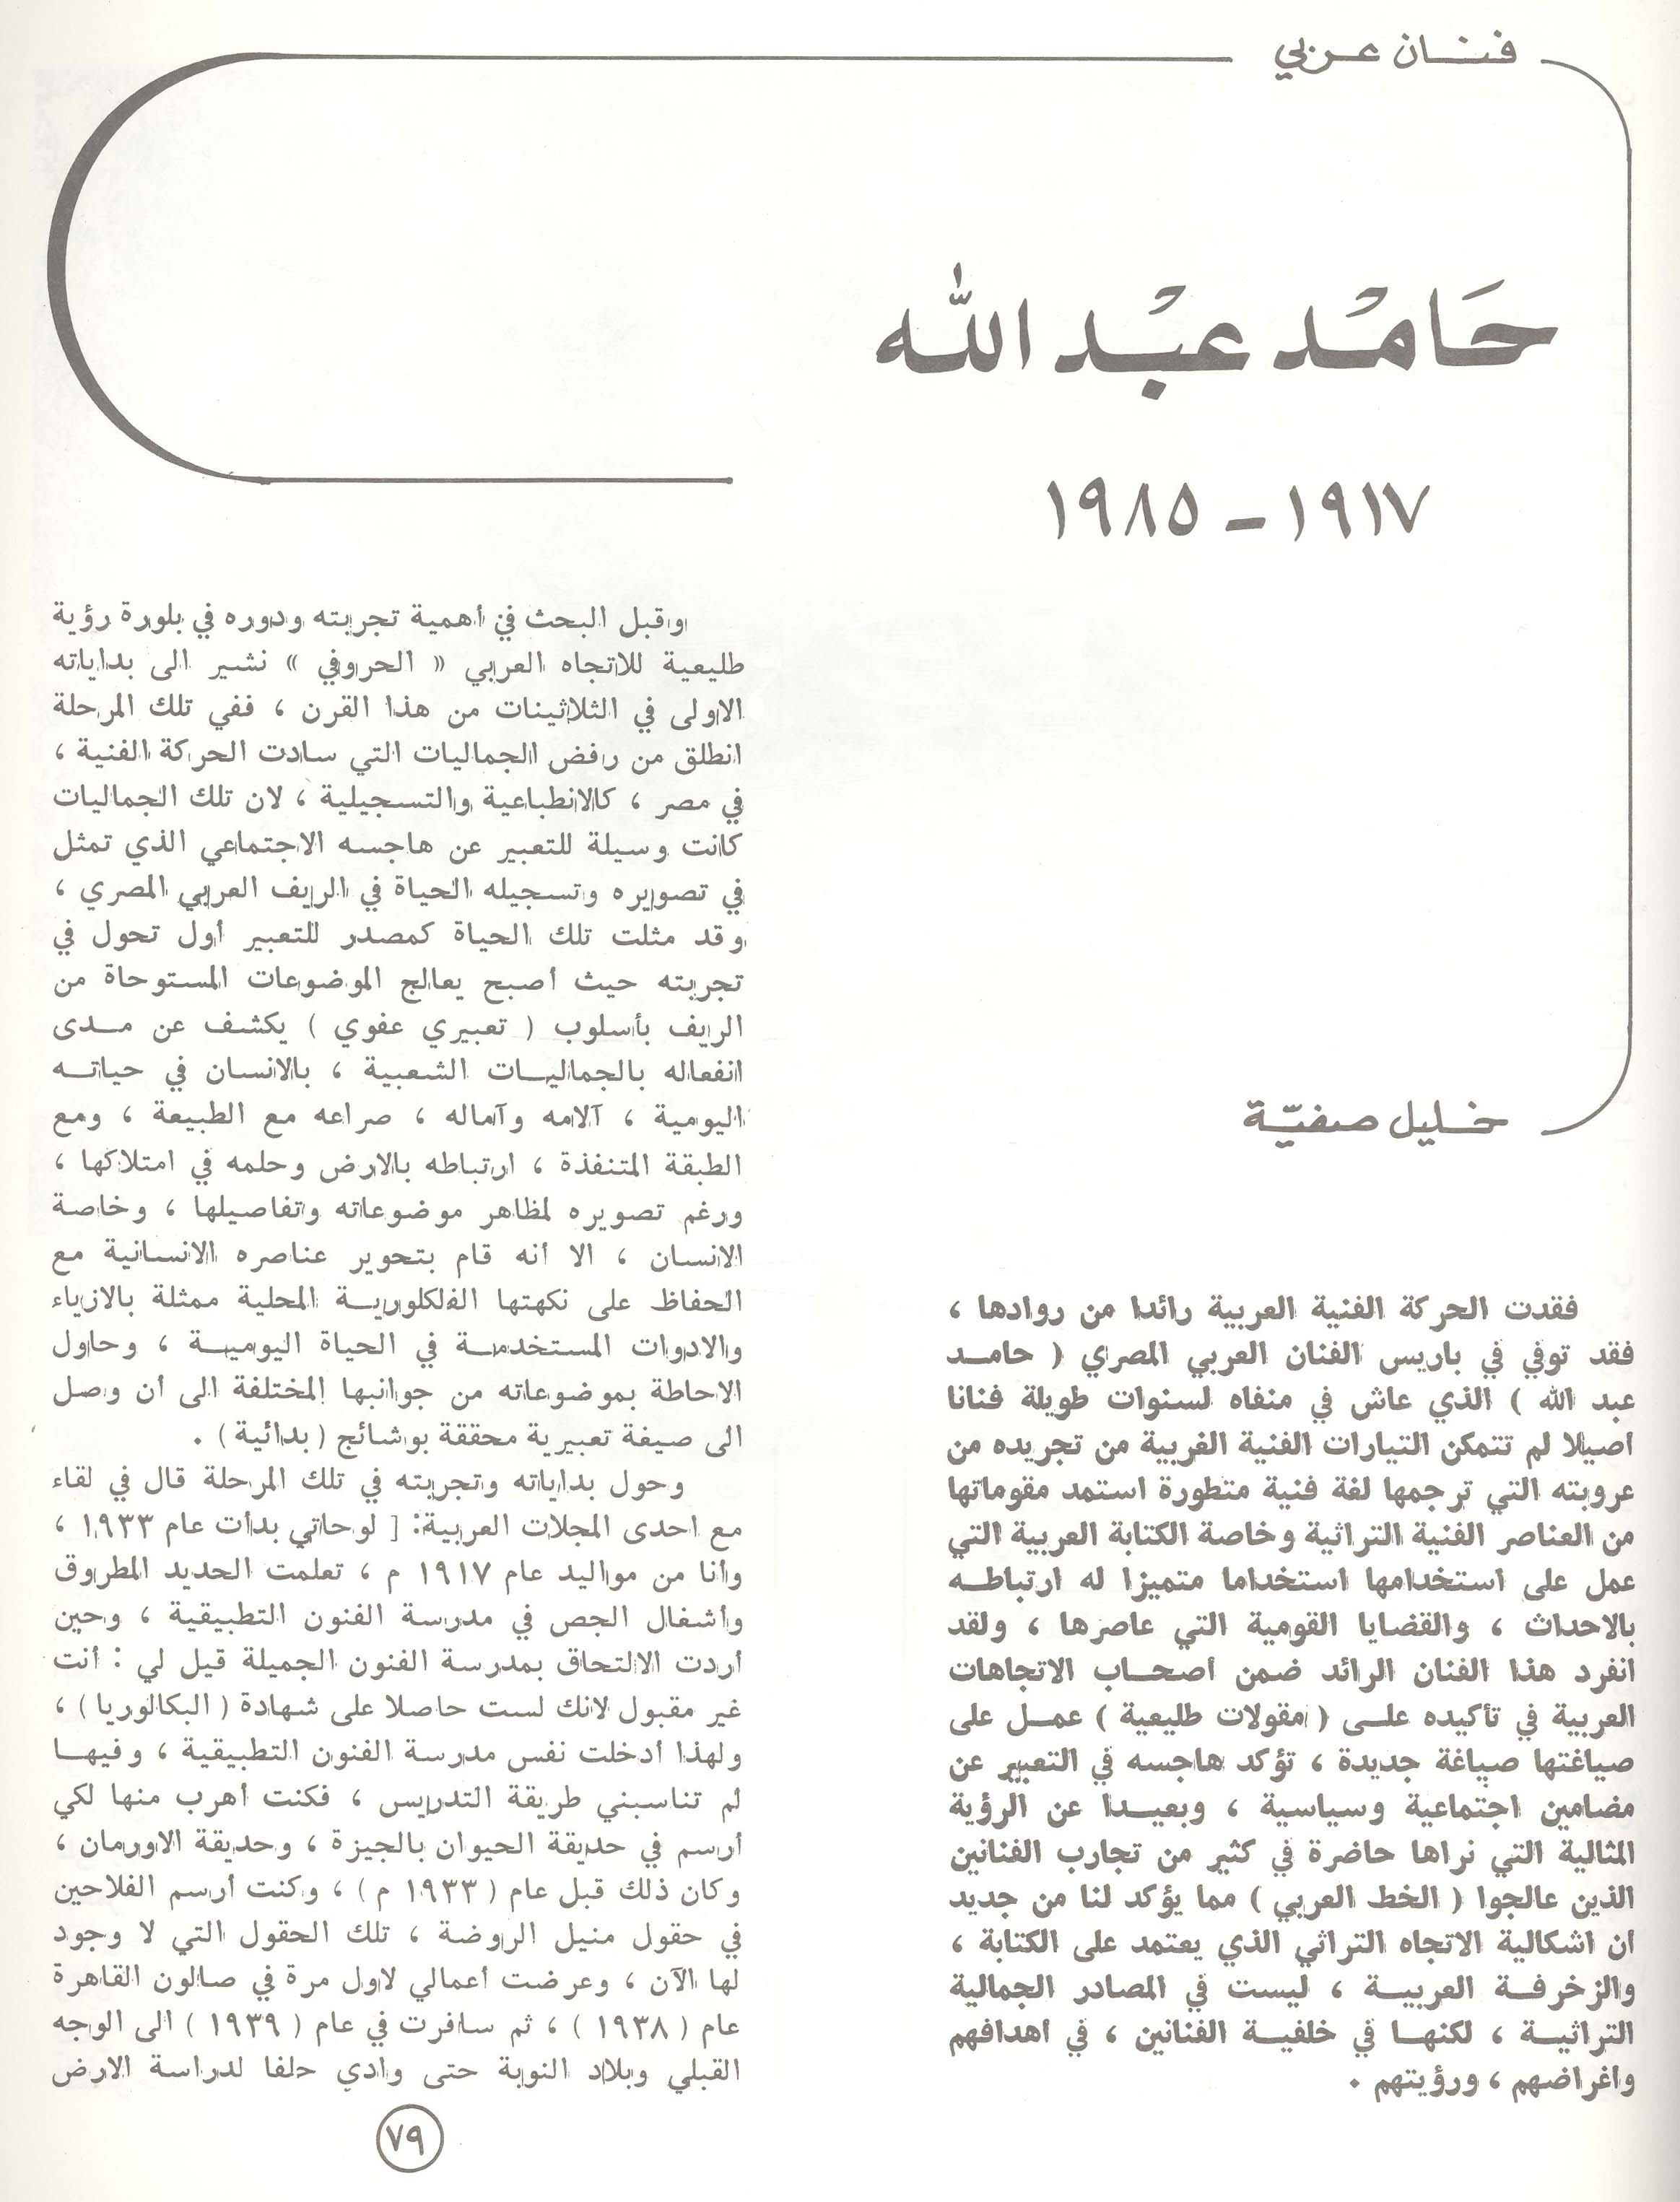 فنان عربي
حَامْد عبْد الله
١٩١٧ - ١٩٨٥
خليل صفيّة
فقدت الحركة الفنية العربية رائدا من روادها ،
فقد توفي في باريس الفنان العربي المصري ( حامد
عبد الله ) الذي عاش في منفاه لسنوات طويلة فنانا
أصيلا لم تتمكن التيارات الفنية الغربية من تجريده من
عروبته التي ترجمها لغة فنية متطورة استمد مقوماتها
من العناصر الفنية التراثية وخاصة الكتابة العربية التي
عمل على استخدامها استخداما متميزا له ارتباطه
بالاحداث ، والقضايا القومية التي عاصرها ، ولقد
انفرد هذا الفنان الرائد ضمن أصحاب الاتجاهات
العربية في تأكيده على ( مقولات طليعية ) عمل على
صياغتها صياغة جديدة ، تؤكد هاجسه في التعبير عن
مضامين اجتماعية وسياسية ، وبعيدا عن الرؤية
المثالية التي نراها حاضرة في كثير من تجارب الفنانين
الذين عالجوا ( الخط العربي ) مما يؤكد لنا من جديد
أن اشكالية الاتجاه التراثي الذي يعتمد على الكتابة ،
والزخرفة العربية ، ليست في المصادر الجمالية
التراثية ، لكنها في خلفية الفنانين ، في أهدافهم
وأغراضهم ، ورؤيتهم .
وقبل البحث في أهمية تجربته ودوره في بلورة رؤية
طليعية للاتجاه العربي « الحروفي » نشير الى بداياته
الاولى في الثلاثينات من هذا القرن ، ففي تلك المرحلة
انطلق من رفض الجماليات التي سادت الحركة الفنية ،
في مصر ، كالانطباعية والتسجيلية ، لان تلك الجماليات
كانت وسيلة للتعبير عن هاجسه الاجتماعي الذي تمثل
في تصويره وتسجيله الحياة في الريف العربي المصري ،
وقد مثلت تلك الحياة كمصدر للتعبير أول تحول في
تجربته حيث أصبح يعالج الموضوعات المستوحاة من
الريف بأسلوب ( تعبيري عفوي ) يكشف عن مدى
انفعاله بالجماليات الشعبية ، بالانسان في حياته
اليومية ، آلامه وآماله ، صراعه مع الطبيعة ، ومع
الطبقة المتنفذة ، ارتباطه بالارض وحلمه في امتلاكها ،
ورغم تصويره لمظاهر موضوعاته وتفاصيلها ، وخاصة
الانسان ، الا أنه قام بتحوير عناصره الانسانية مع
الحفاظ على نكهتها الفلكلورية المحلية ممثلة بالازياء
والادوات المستخدمة في الحياة اليومية ، وحاول
الاحاطة بموضوعاته من جوانبها المختلفة الى أن وصل
الى صيغة تعبيرية محققة بوشائج ( بدائية ) .
وحول بداياته وتجربته في تلك المرحلة قال في لقاء
مع احدى المجلات العربية: [ لوحاتي بدأت عام ١٩٣٣ ،
وأنا من مواليد عام ١٩١٧ م ، تعلمت الحديد المطروق
وأشغال الجص في مدرسة الفنون التطبيقية ، وحين
أردت الالتحاق بمدرسة الفنون الجميلة قيل لي : أنت
غير مقبول لانك لست حاصلا على شهادة ( البكالوريا ) ،
ولهذا أدخلت نفس مدرسة الفنون التطبيقية ، وفيها
لم تناسبني طريقة التدريس ، فكنت أهرب منها لكي
أرسم في حديقة الحيوان بالجيزة ، وحديقة الاورمان ،
وكان ذلك قبل عام ( ١٩٣٣ م ) ، وكنت أرسم الفلاحين
في حقول منيل الروضة ، تلك الحقول التي لا وجود
لها الآن ، وعرضت أعمالي لاول مرة في صالون القاهرة
عام ( ١٩٣٨ ) ، ثم سافرت في عام ( ١٩٣٩ ) الى الوجه
القبلي وبلاد النوبة حتى وادي حلفا لدراسة الارض
٧٩